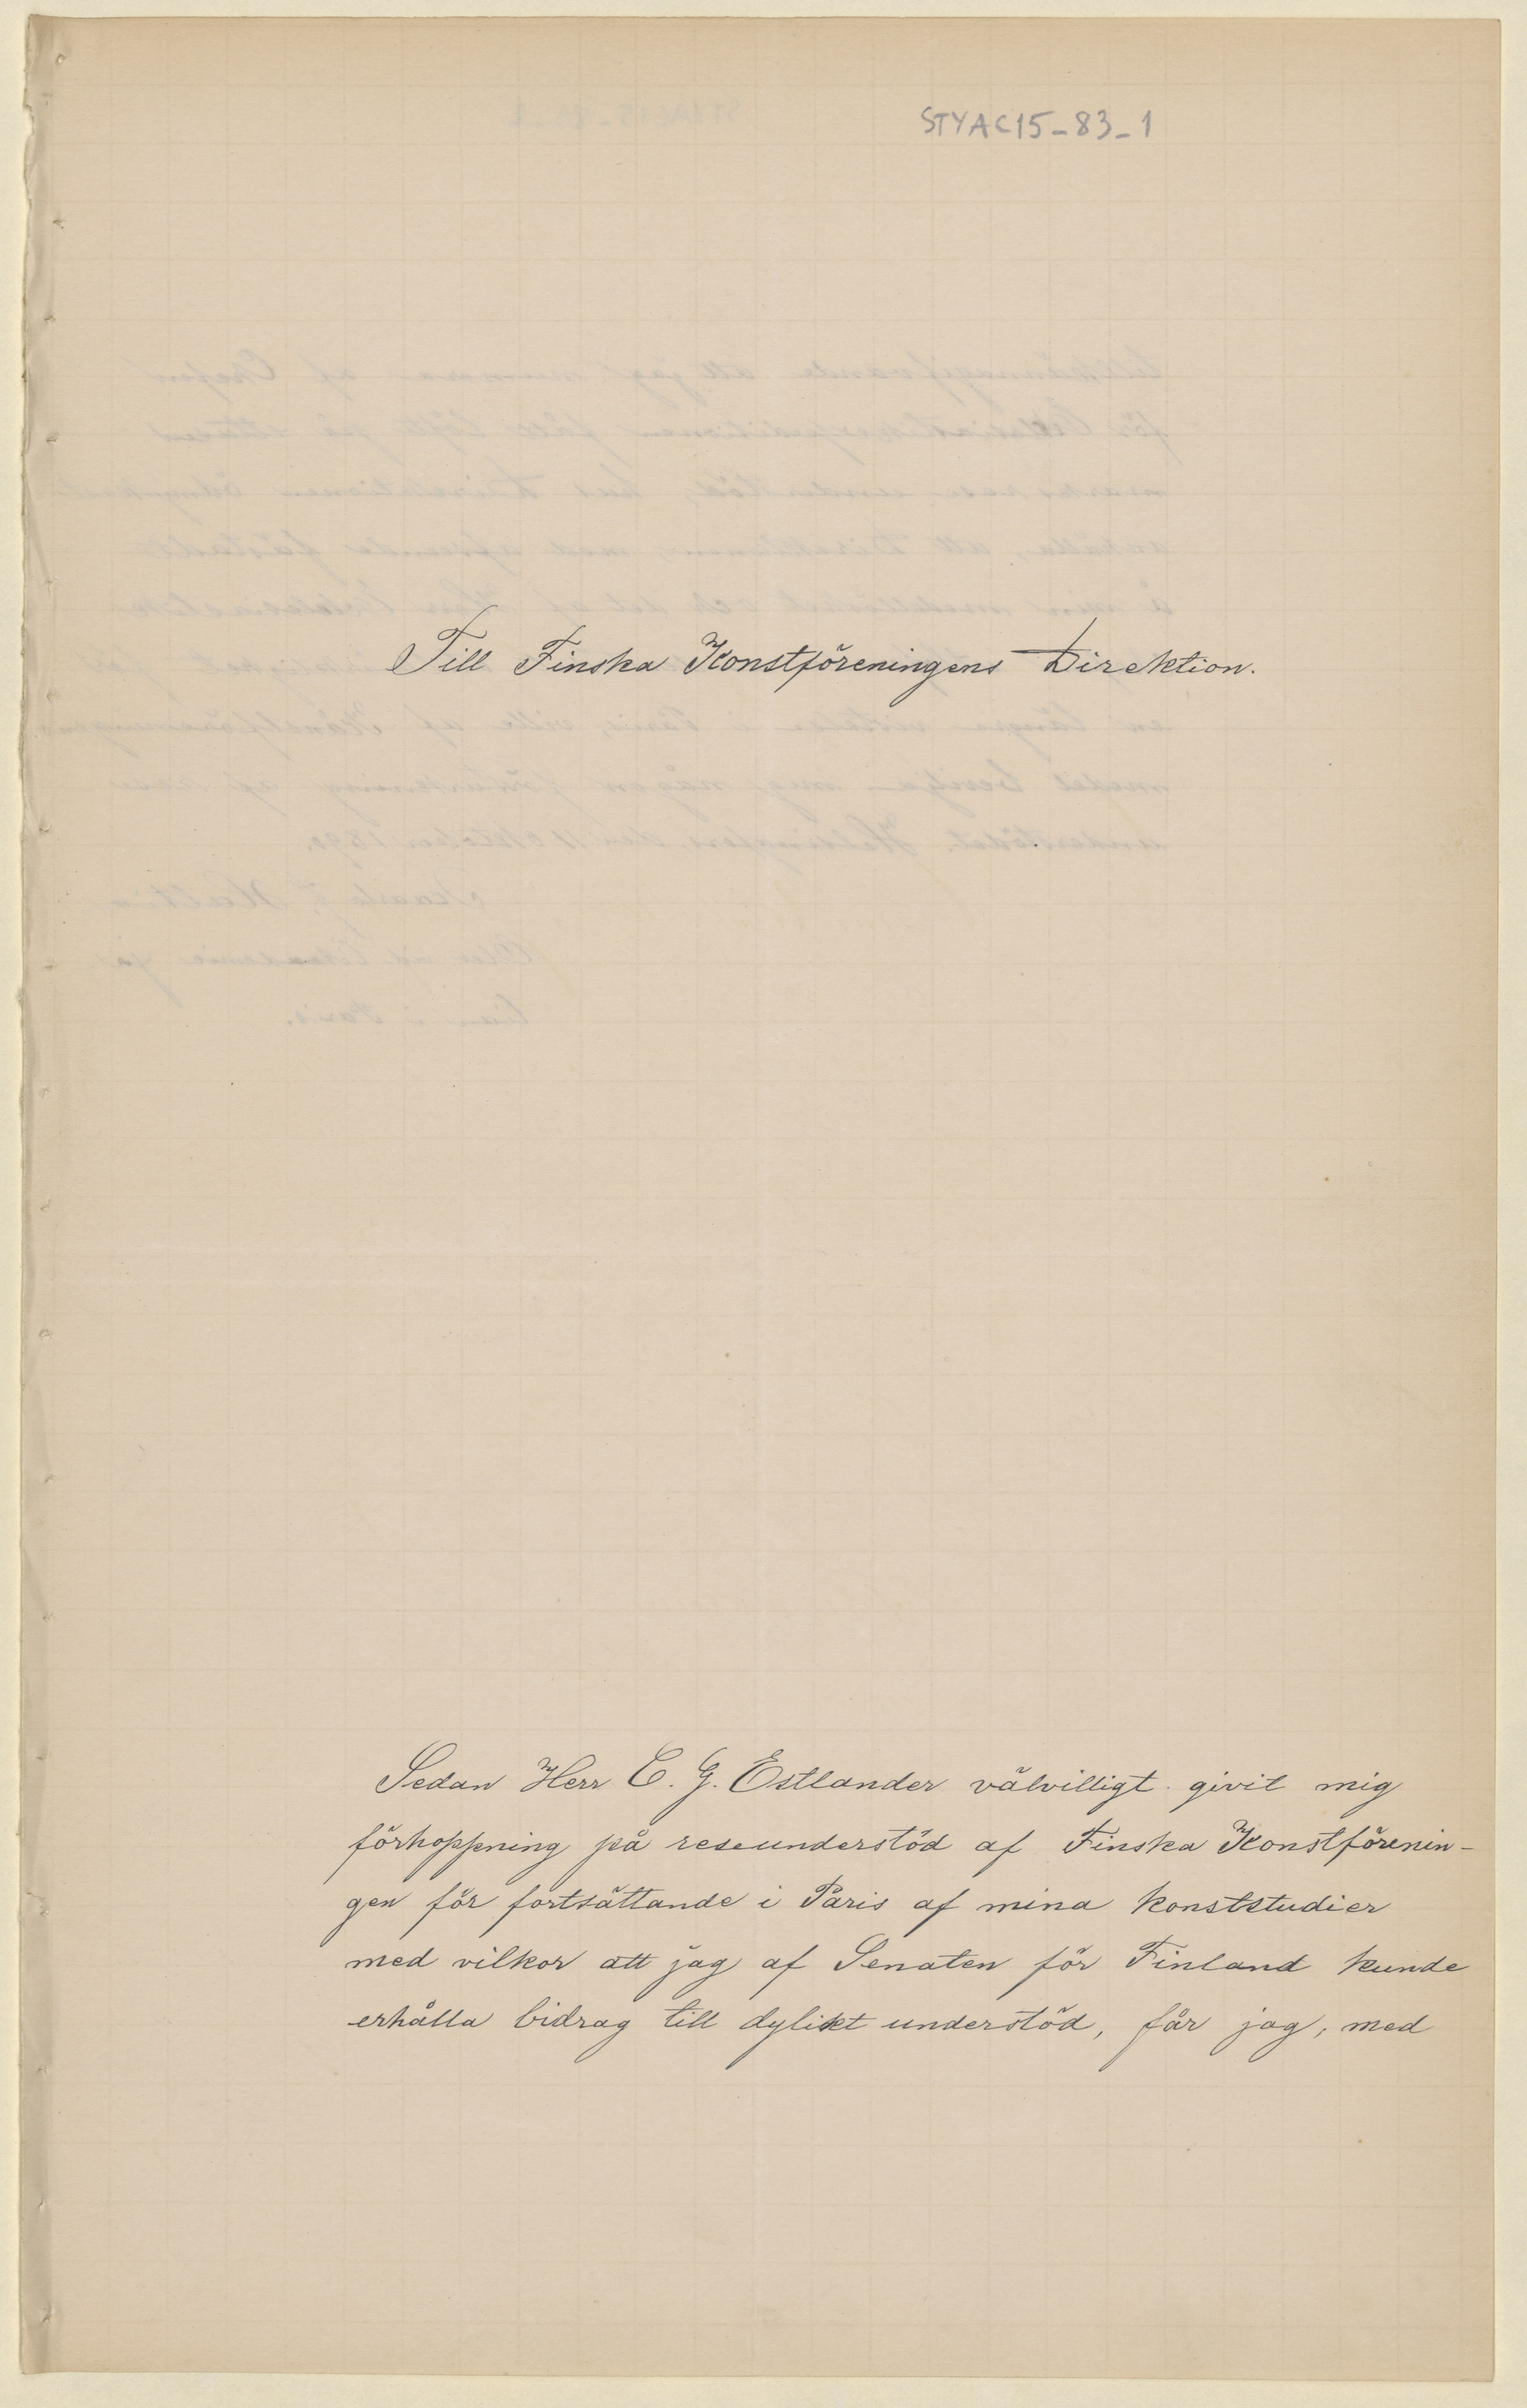 STYAC15-83-1
Till Finska Konstföreningens Direktion.
Sedan Herr C. G. Estlander välvilligt givit mig
förhoppning på reseunderstöd af Finska Konstförenin-
gen för fortsättande i Paris af mina konststudier
med vilkor att jag af Senaten för Finland kunde
erhålla bidrag till dylikt understöd, får jag, med